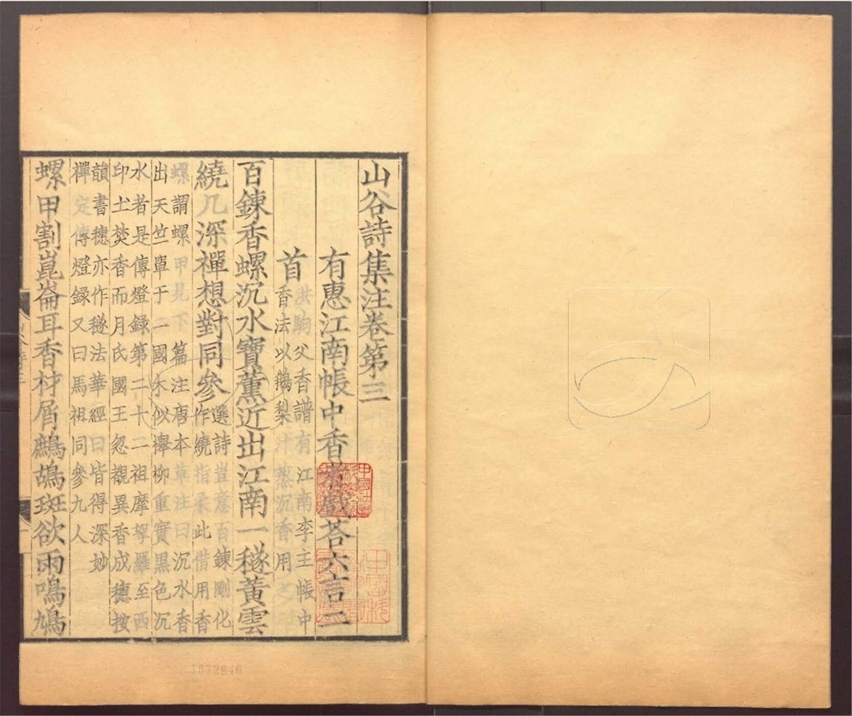 山谷詩集注卷第三
有惠江南帳中香者戲荅六言二
首
洪駒父香譜有江南李主帳中
香法以鵝梨汁蒸沉香用
百鍊香螺沉水寶薰近出江南一穟黃雲
繞几深禪想對同參
選詩豈意百鍊剛化
作繞指柔此借用香
螺謂螺甲見下篇注唐本草注曰沉水香
出天竺單于二國木似櫸柳重實黑色沉
水者是傳燈錄第二十二祖摩拏羅至西
印土焚香而月氏國王忽覩異香成穗按
韻書穗亦作穟法華經曰皆得深妙
禪定傳燈録又曰馬祖同參九人
螺甲割崑崙耳香材屑鷓鴣斑欲雨鳴鳩